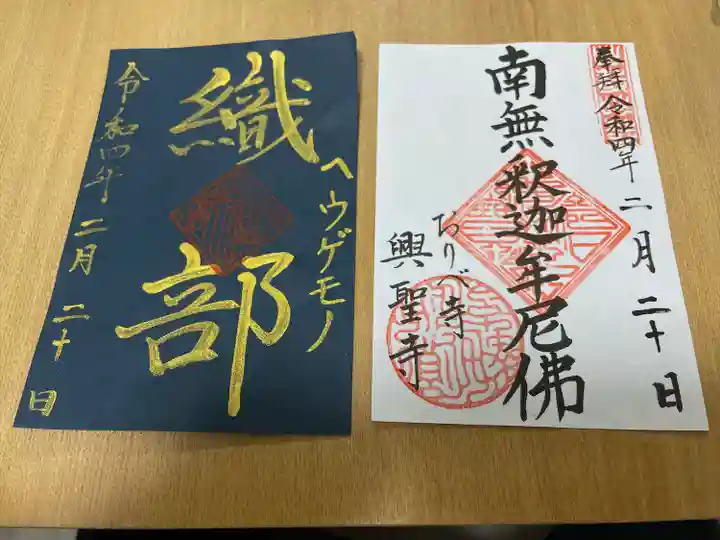 織部
ヘウゲモノ
令和四年 二月 二十日
奉拜 令和四年 二月 二十日
南無釈迦牟尼佛
おりべ寺
興聖寺